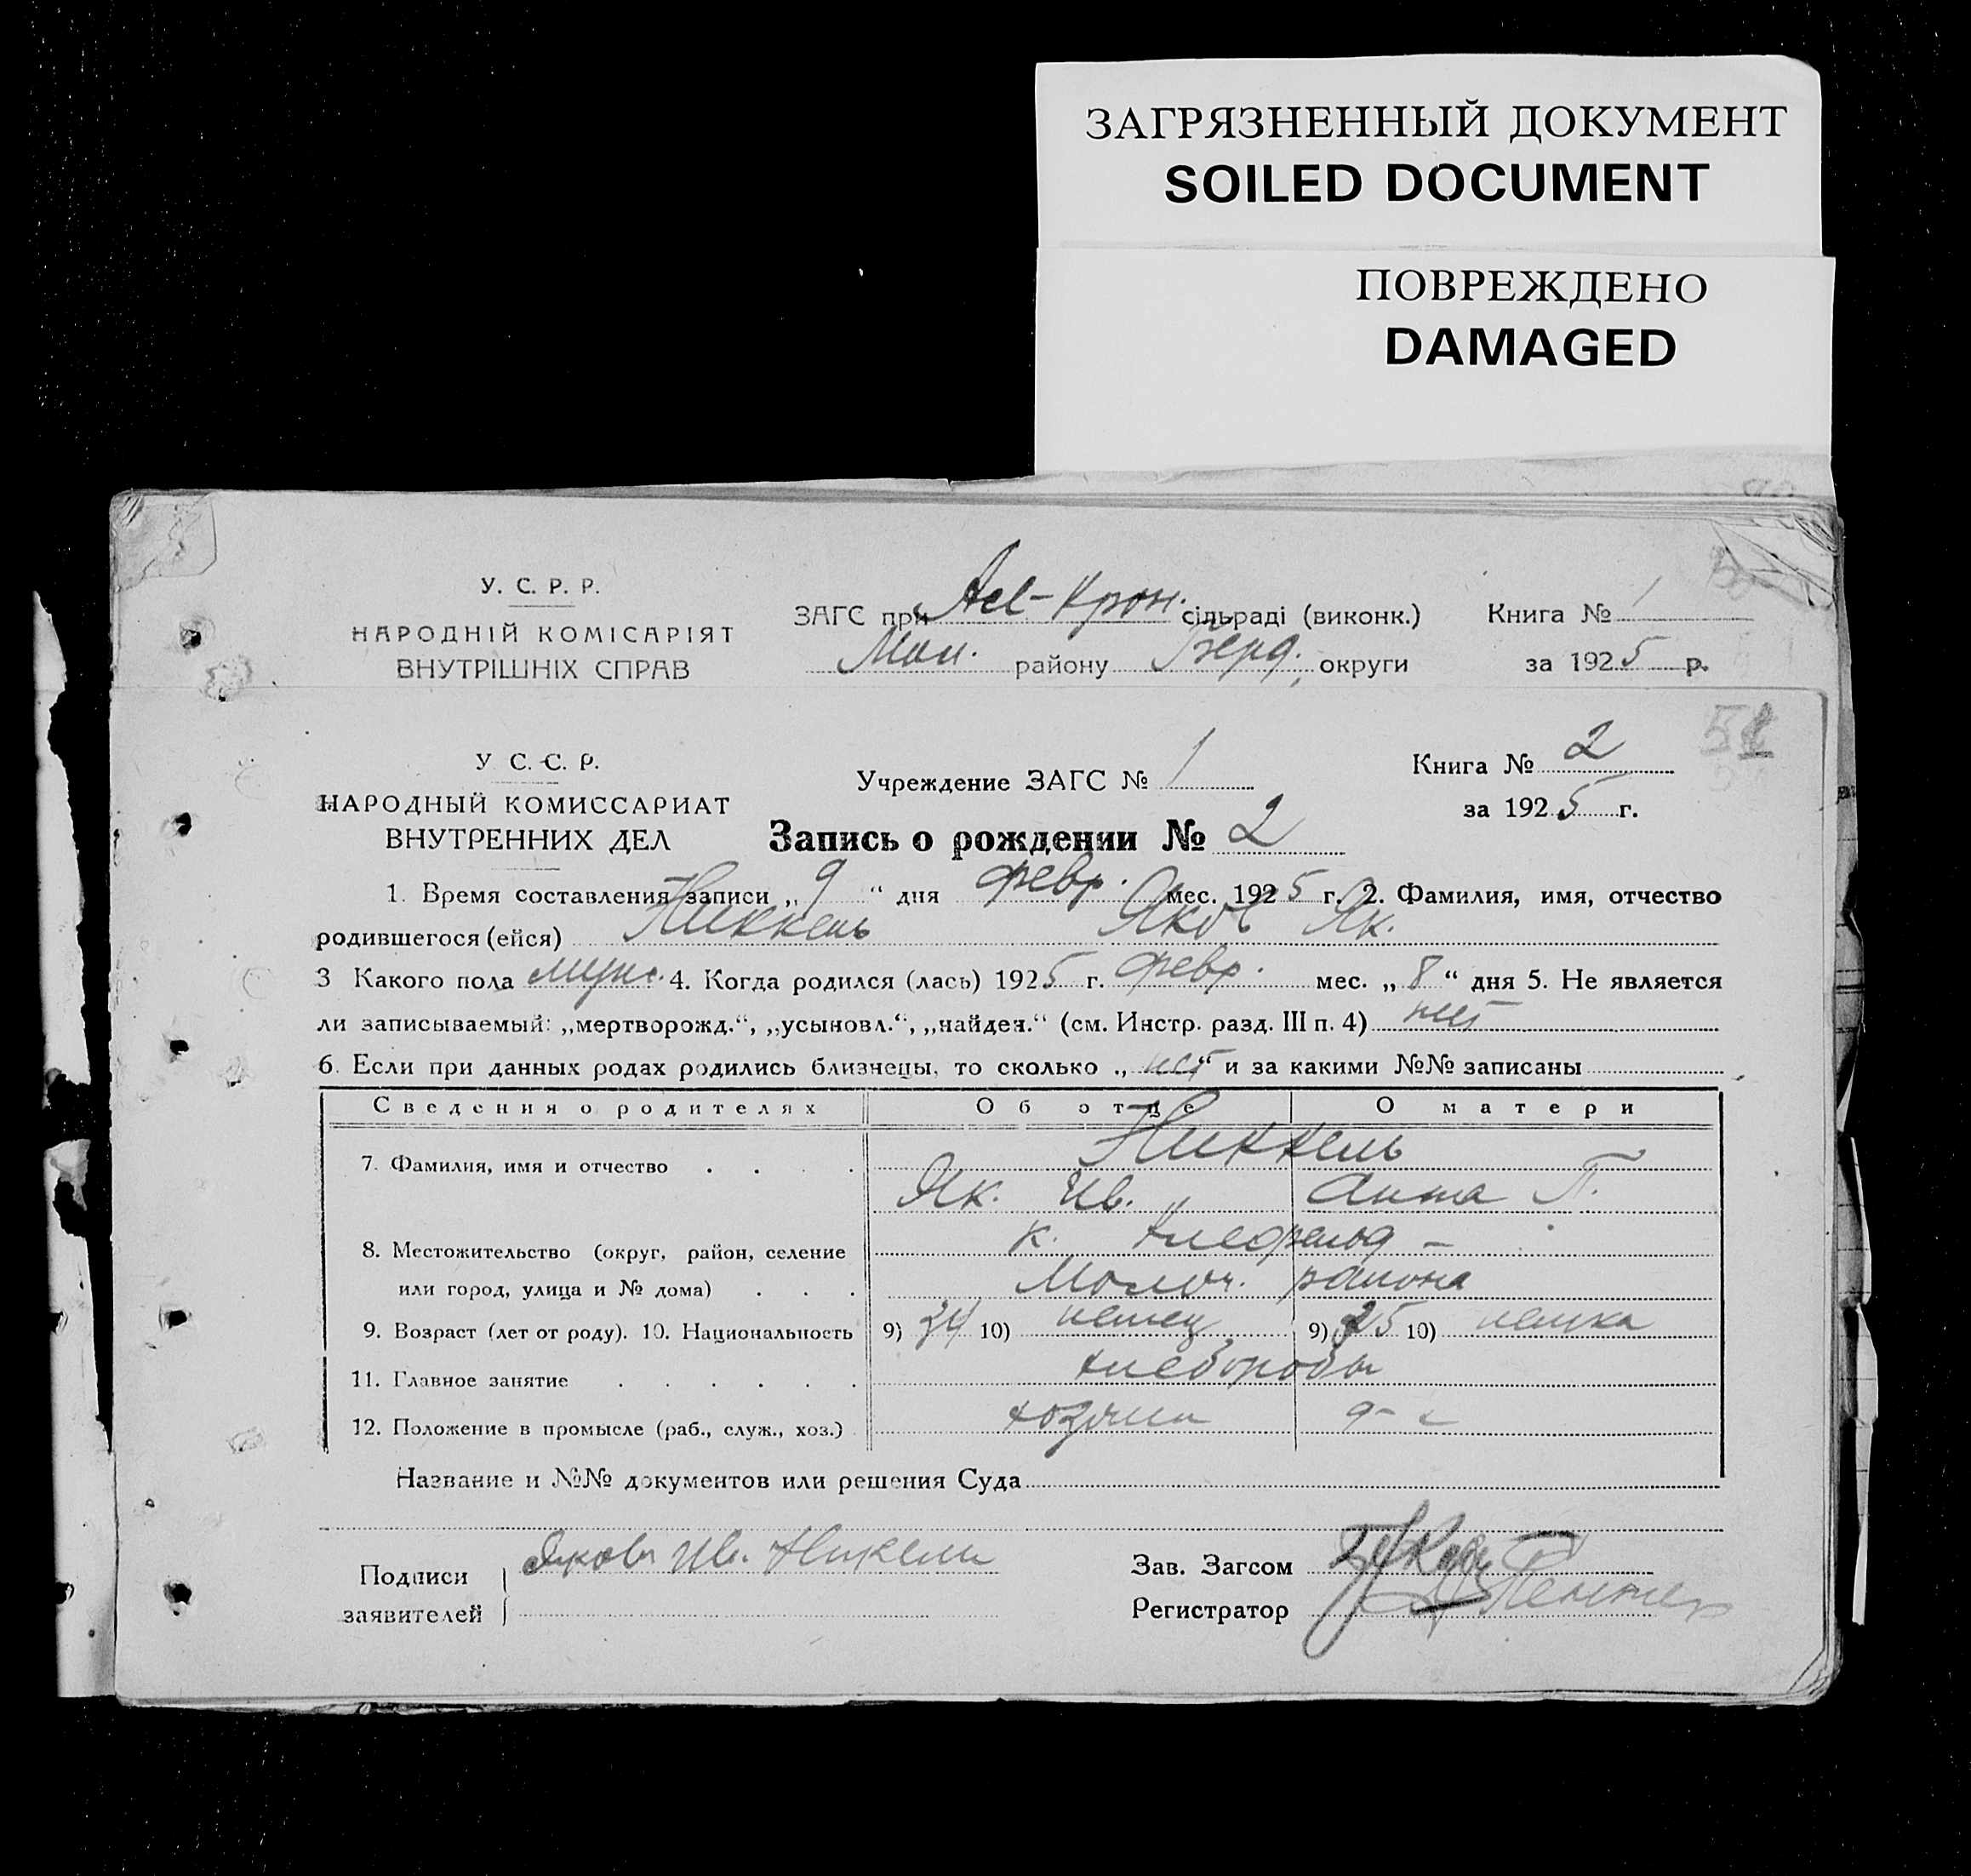 ЗАГРЯЗНЕННЫЙ ДОКУМЕНТ
SOILED DOCUMENT
ПОВРЕЖДЕНО
DAMAGED
У. С. Р. Р.
НАРОДНІЙ КОМІСАРІЯТ
ВНУТРІШНІХ СПРАВ
ЗАГС при Ал-Крон. сільраді (виконк.)
Мол. району Берд. округи
Книга № 1
за 1925 р.
У С. С. Р.
НАРОДНЫЙ КОМИССАРИАТ
ВНУТРЕННИХ ДЕЛ
Учреждение ЗАГС № 1
Книга № 2
за 1925 г.
Запись о рождении № 2
1. Время составления записи „ 9 “ дня февр. мес. 1925 г. 2. Фамилия, имя, отчество
родившегося (ейся) Никкель Яков Як.
3 Какого пола муж. 4. Когда родился (лась) 1925 г. февр. мес. „ 8 “ дня 5. Не является
ли записываемый: „мертворожд.“, „усыновл.“, „найден.“ (см. Инстр. разд. III п. 4) нет
6. Если при данных родах родились близнецы, то сколько „ нет “ и за какими №№ записаны
Сведения о родителях Об отце О матери
7. Фамилия, имя и отчество Никкель
Як. Ив. Анна П.
8. Местожительство (округ, район, селение к.
или город, улица и № дома) Молоч. района
9. Возраст (лет от роду). 10. Национальность 9) 34 10) немец 9) 25 10) немка
11. Главное занятие хлеборобы
12. Положение в промысле (раб., служ., хоз.) хозяин
Название и №№ документов или решения Суда
Подписи заявителей Яков Ив. Никкель
Зав. Загсом
Регистратор